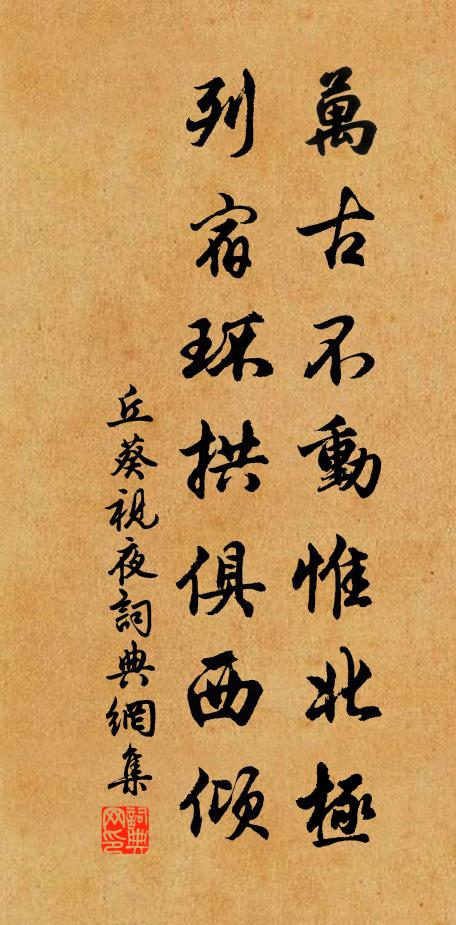 萬古不動惟北極
列宿环拱俱西傾
丘葵視夜詞典網集
詞典网印